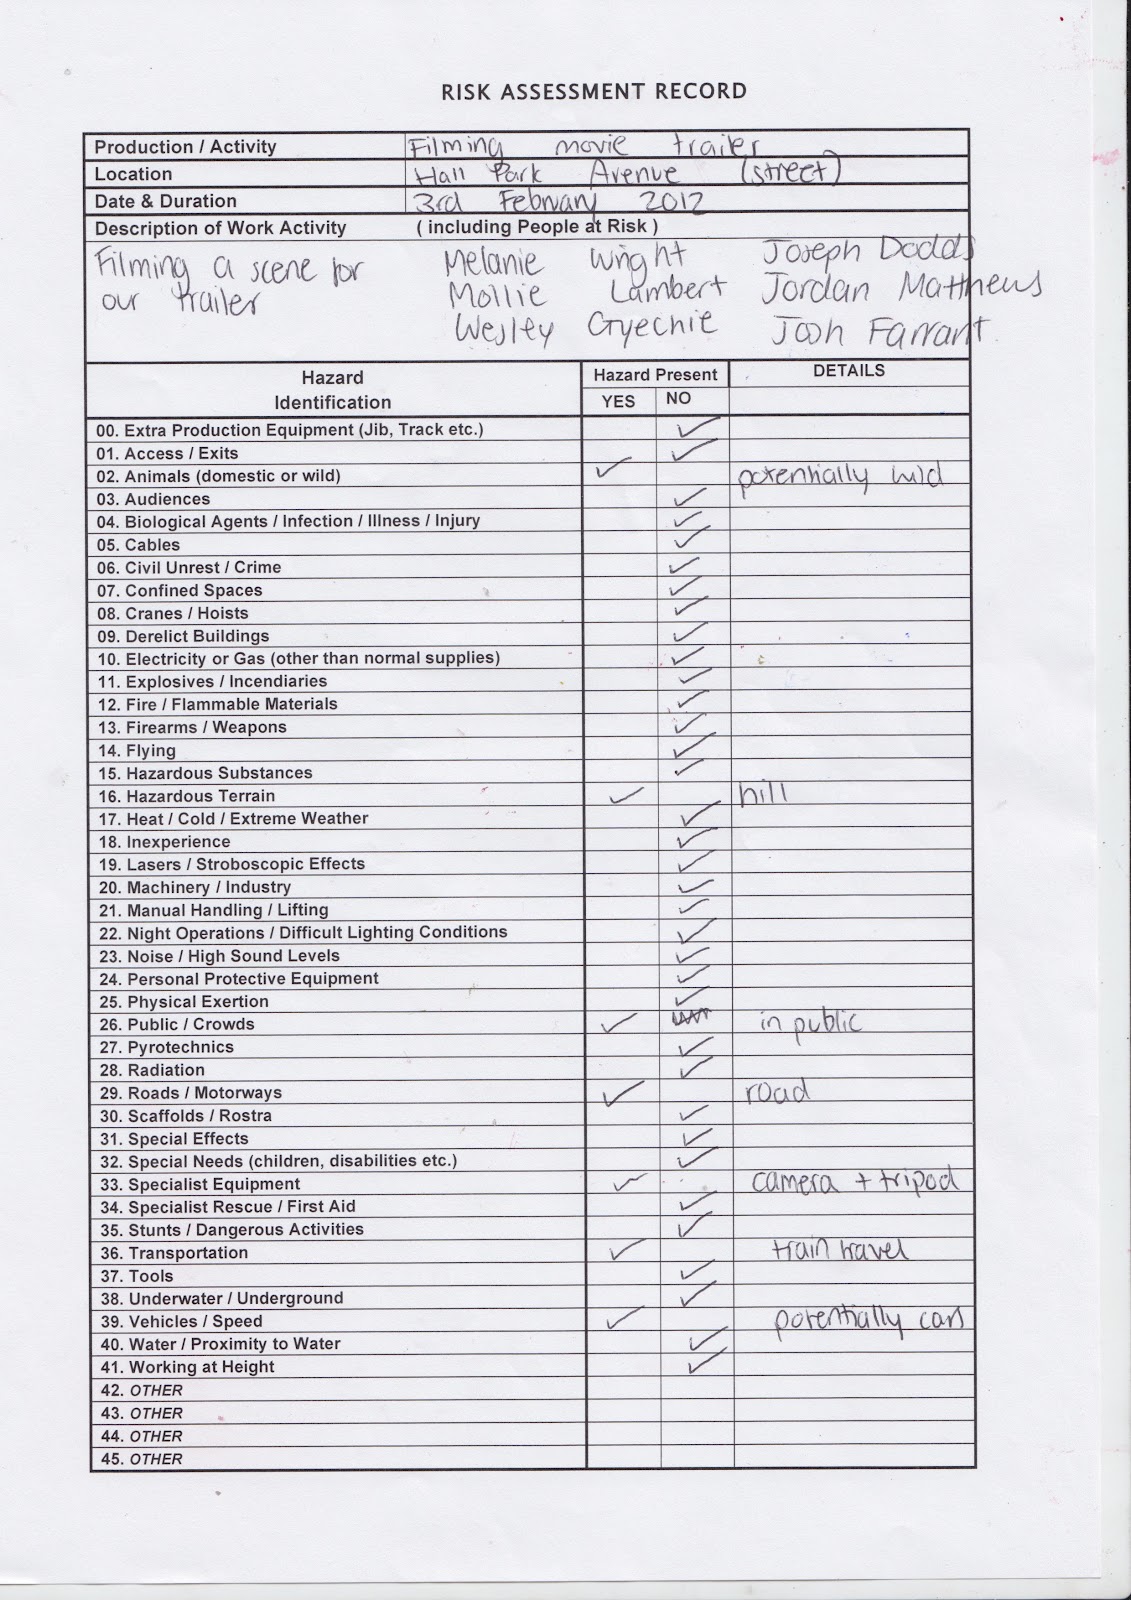 RISK ASSESSMENT RECORD
Production / Activity Filming movie trailer
Location Hall Park Avenue (street)
Date & Duration 3rd February 2012
Description of Work Activity (including People at Risk)
Filming a scene for Melanie Wright Joseph Dodds
our trailer Mollie Lambert Jordan Matthews
Wesley Gyechie Josh Farrant.
Hazard Hazard Present DETAILS
Identification YES NO
00. Extra Production Equipment (Jib, Track etc.) ✓
01. Access / Exits ✓
02. Animals (domestic or wild) ✓ potentially wild
03. Audiences ✓
04. Biological Agents / Infection / Illness / Injury ✓
05. Cables ✓
06. Civil Unrest / Crime ✓
07. Confined Spaces ✓
08. Cranes / Hoists ✓
09. Derelict Buildings ✓
10. Electricity or Gas (other than normal supplies) ✓
11. Explosives / Incendiaries ✓
12. Fire / Flammable Materials ✓
13. Firearms / Weapons ✓
14. Flying ✓
15. Hazardous Substances ✓
16. Hazardous Terrain ✓ hill
17. Heat / Cold / Extreme Weather ✓
18. Inexperience ✓
19. Lasers / Stroboscopic Effects ✓
20. Machinery / Industry ✓
21. Manual Handling / Lifting ✓
22. Night Operations / Difficult Lighting Conditions ✓
23. Noise / High Sound Levels ✓
24. Personal Protective Equipment ✓
25. Physical Exertion ✓
26. Public / Crowds ✓ in public
27. Pyrotechnics ✓
28. Radiation ✓
29. Roads / Motorways ✓ road
30. Scaffolds / Rostra ✓
31. Special Effects ✓
32. Special Needs (children, disabilities etc.) ✓
33. Specialist Equipment ✓ camera + tripod
34. Specialist Rescue / First Aid ✓
35. Stunts / Dangerous Activities ✓
36. Transportation ✓ train travel
37. Tools ✓
38. Underwater / Underground ✓
39. Vehicles / Speed ✓ potentially cars
40. Water / Proximity to Water ✓
41. Working at Height ✓
42. OTHER
43. OTHER
44. OTHER
45. OTHER